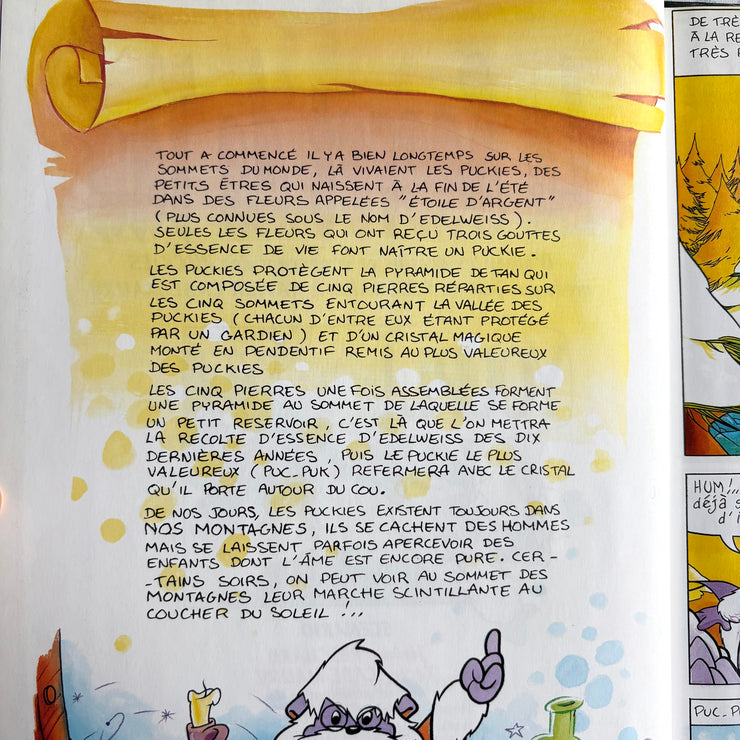 TOUT A COMMENCÉ IL Y A BIEN LONGTEMPS SUR LES
SOMMETS DU MONDE, LÀ VIVAIENT LES PUCKIES, DES
PETITS ÊTRES QUI NAISSENT À LA FIN DE L'ÉTÉ
DANS DES FLEURS APPELÉES "ÉTOILE D'ARGENT"
(PLUS CONNUES SOUS LE NOM D'EDELWEISS).
SEULES LES FLEURS QUI ONT REÇU TROIS GOUTTES
D'ESSENCE DE VIE FONT NAÎTRE UN PUCKIE.
LES PUCKIES PROTÈGENT LA PYRAMIDE DE TAN QUI
EST COMPOSÉE DE CINQ PIERRES RÉPARTIES SUR
LES CINQ SOMMETS ENTOURANT LA VALLÉE DES
PUCKIES (CHACUN D'ENTRE EUX ÉTANT PROTÉGÉ
PAR UN GARDIEN) ET D'UN CRISTAL MAGIQUE
MONTÉ EN PENDENTIF REMIS AU PLUS VALEUREUX
DES PUCKIES
LES CINQ PIERRES UNE FOIS ASSEMBLÉES FORMENT
UNE PYRAMIDE AU SOMMET DE LAQUELLE SE FORME
UN PETIT RESERVOIR, C'EST LÀ QUE L'ON METTRA
LA RECOLTE D'ESSENCE D'EDELWEISS DES DIX
DERNIÈRES ANNÉES, PUIS LE PUCKIE LE PLUS
VALEUREUX (PUC-PUK) REFERMERA AVEC LE CRISTAL
QU'IL PORTE AUTOUR DU COU.
DE NOS JOURS, LES PUCKIES EXISTENT TOUJOURS DANS
NOS MONTAGNES, ILS SE CACHENT DES HOMMES
MAIS SE LAISSENT PARFOIS APERCEVOIR DES
ENFANTS DONT L'ÂME EST ENCORE PURE. CER-
-TAINS SOIRS, ON PEUT VOIR AU SOMMET DES
MONTAGNES LEUR MARCHE SCINTILLANTE AU
COUCHER DU SOLEIL !..
DE TRÈ
À LA RE
TRÈS
HUM!..
déjà s
d'i
PUC-P